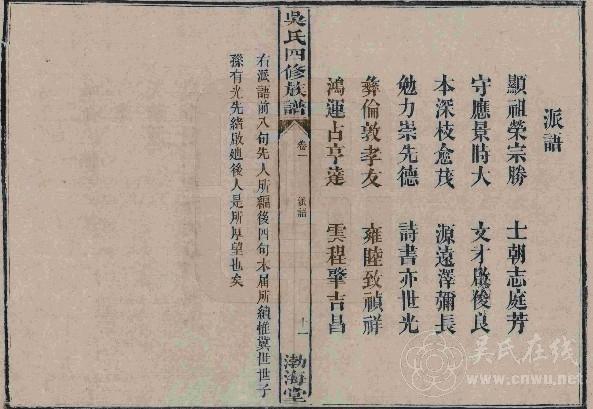 派語
顯祖榮宗勝 士朝志庭芳
守應景時大 文才啟俊良
本深枝愈茂 源遠澤彌長
勉力崇先德 詩書亦世光
彝倫敦孝友 雍睦致禎祥
鴻運占亨達 雲程肇吉昌
吳氏四修族譜
卷一 派語 十一 渤海堂
右派語前八句先人所編後四句本届所續惟冀世世子
孫有光先緒啟迪後人是所厚望也矣
吴氏在线
www.cnwu.net